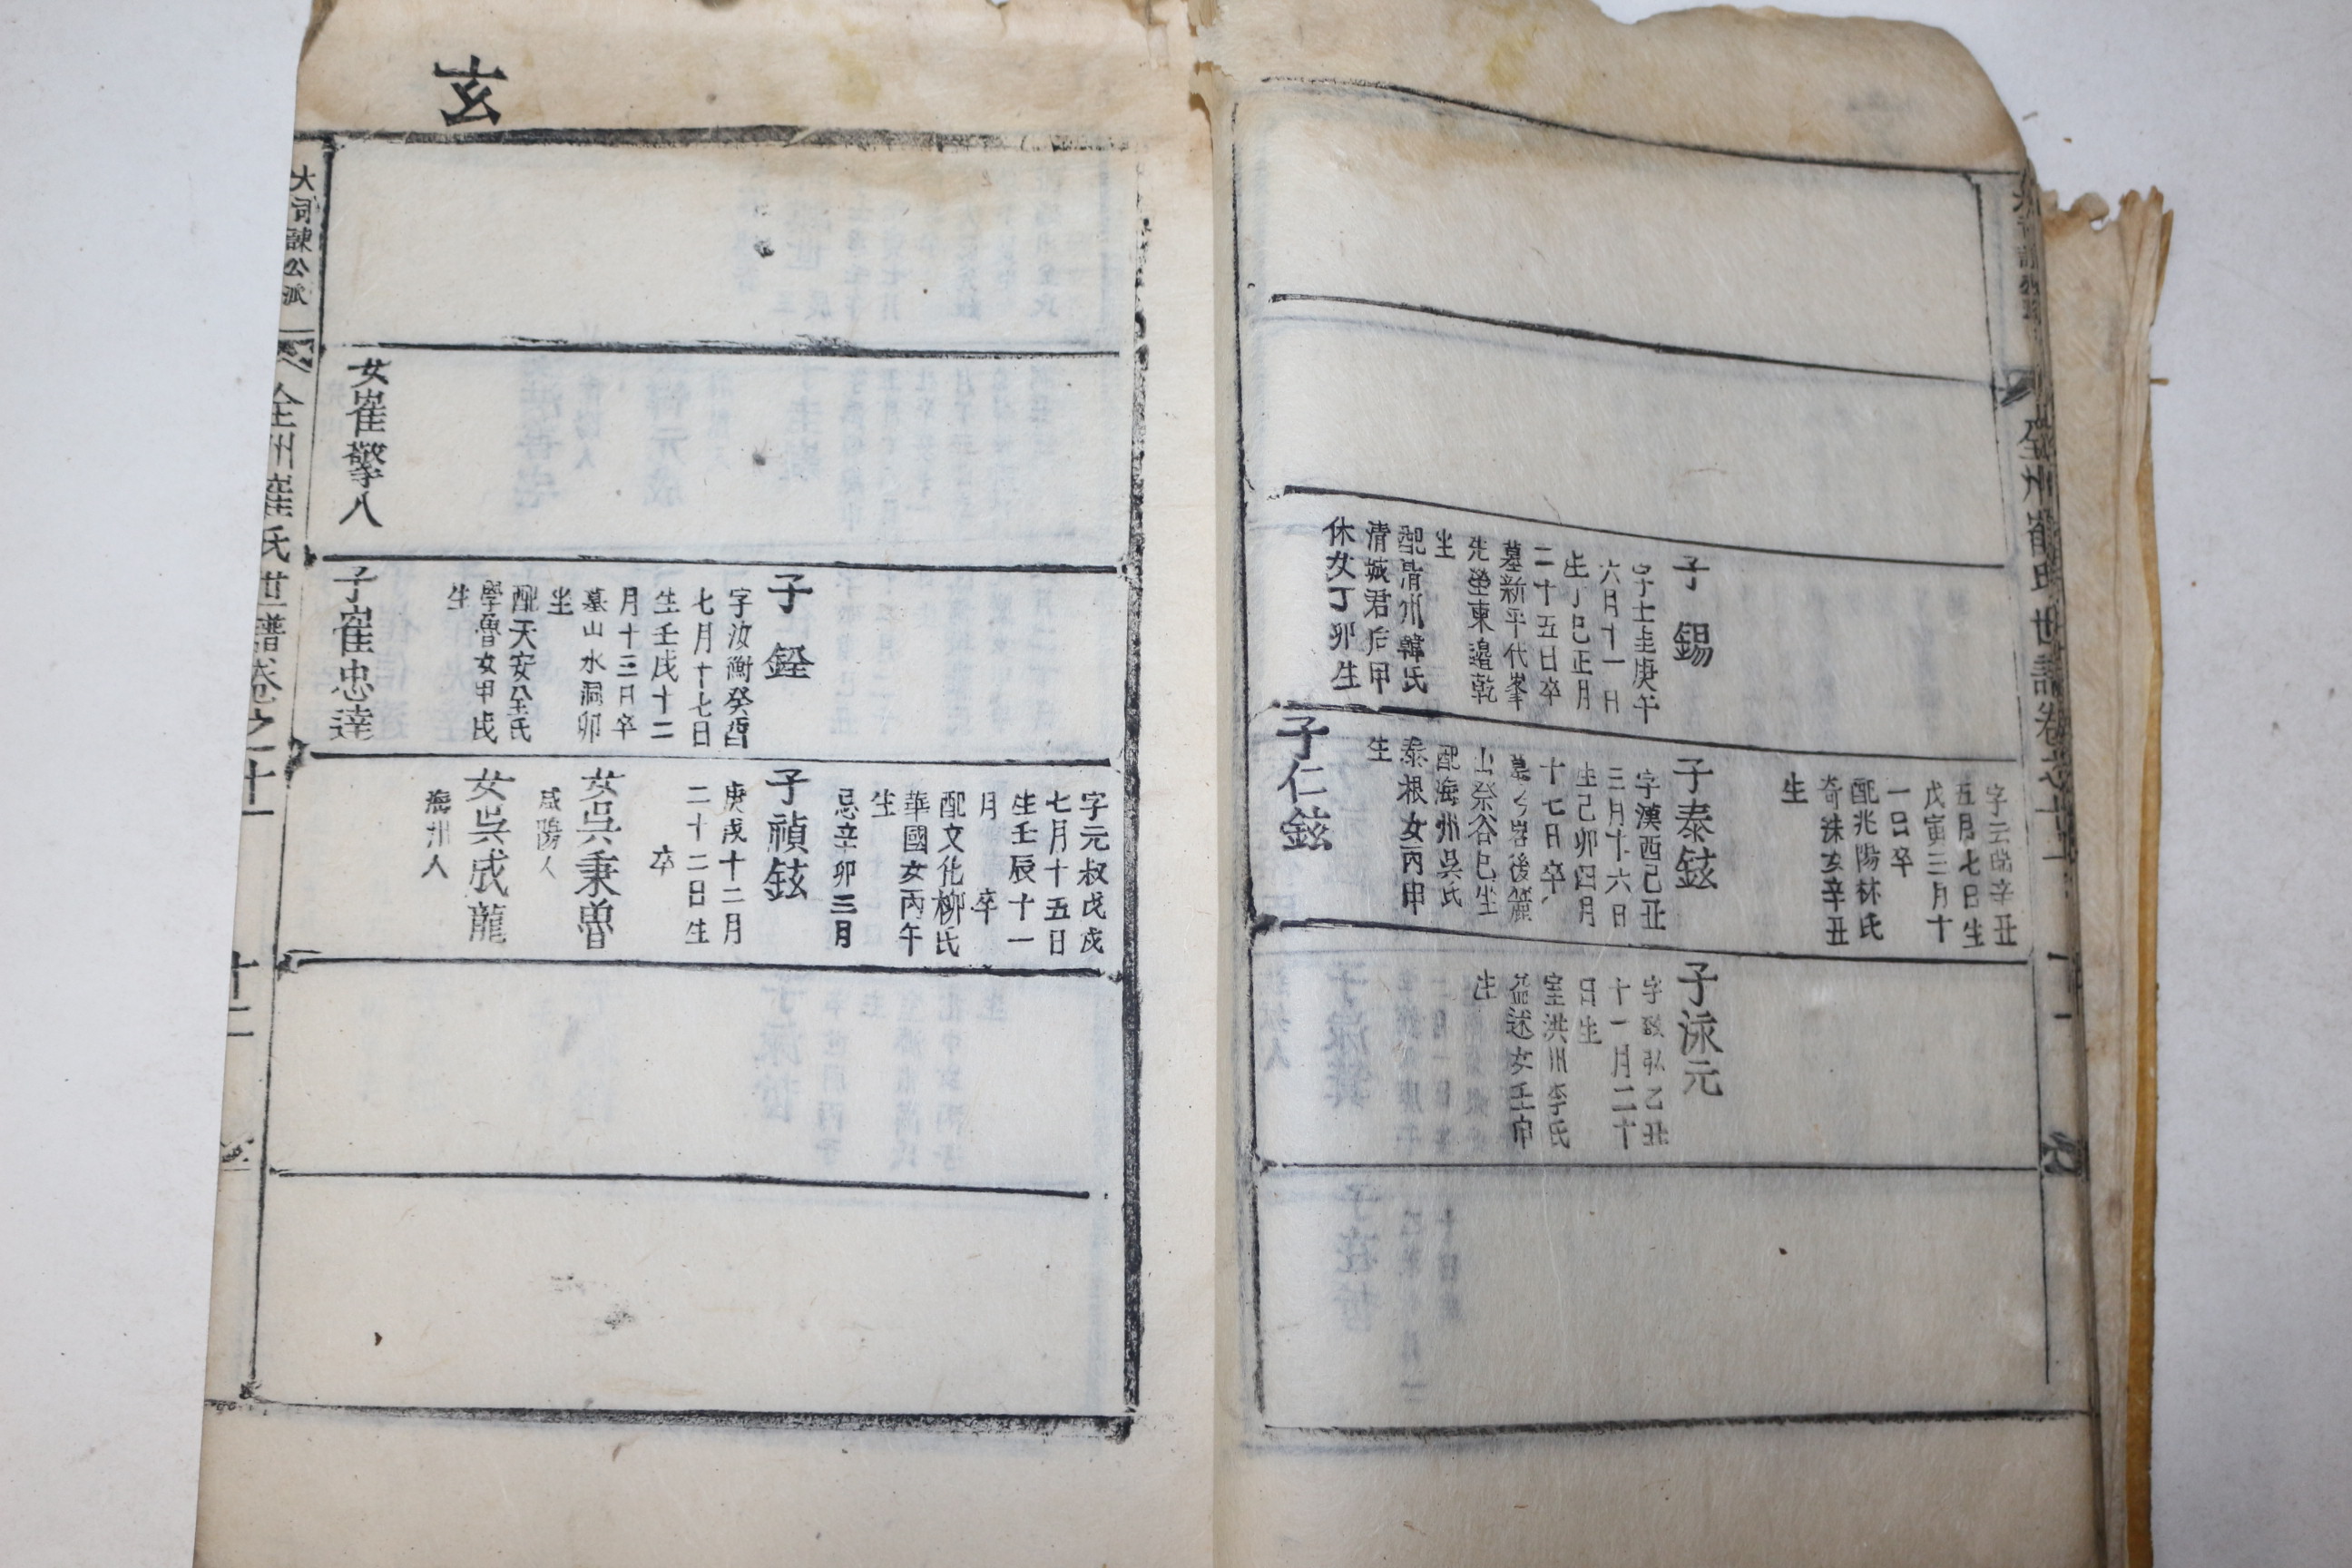 全州崔氏世譜卷之十一
十一
子錫
字士圭庚午
六月十一日
生丁巳正月
二十五日卒
墓新平代峯
先塋東邊乾
坐
配淸州韓氏
淸城君后甲
休女丁卯生
五月七日生
戊寅三月十
一日卒
配兆陽林氏
奇洙女辛丑
生
子泰鉉
字漢西己丑
三月十六日
生己卯四月
十七日卒
配海州吳氏
泰根女丙申
生
子仁鉉
子泳元
十一月二十
日生
室洪州李氏
益述女壬申
生
玄
字元叔戊戌
七月十五日
生壬辰十一
月 卒
配文化柳氏
華國女丙午
生
忌辛卯三月
子銓
字汝衡癸酉
七月十七日
生壬戌十二
月十三日卒
墓山水洞卯
坐
配天安全氏
學魯女甲戌
生
子禎鉉
庚戌十二月
二十二日生
卒
女吳秉曾
咸陽人
女吳成龍
海州人
女崔擎八
子崔忠達
大司諫公派
全州崔氏世譜卷之十一
十二